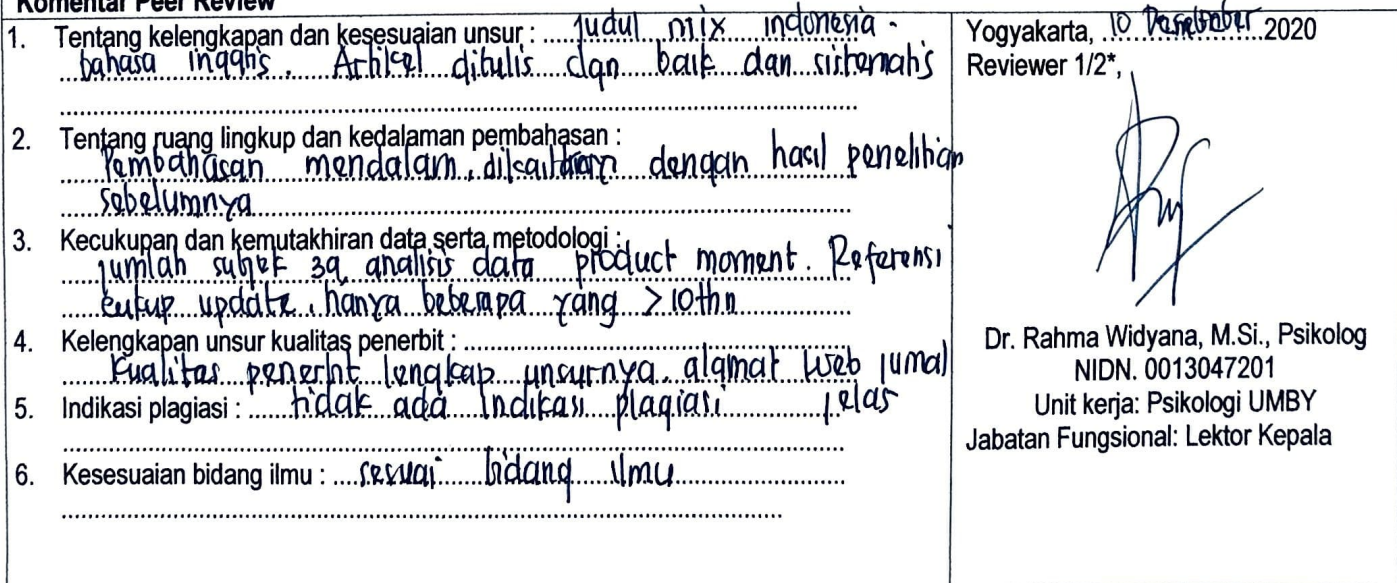 Komentar Peer Review
1. Tentang kelengkapan dan kesesuaian unsur : judul mix indonesia -
bahasa inggris. Artikel ditulis dgn baik dan sistematis
2. Tentang ruang lingkup dan kedalaman pembahasan :
Pembahasan mendalam, dikaitkan dengan hasil penelitian
sebelumnya
3. Kecukupan dan kemutakhiran data serta metodologi :
jumlah subjek 39 analisis data product moment. Referensi
cukup update, hanya beberapa yang >10thn
4. Kelengkapan unsur kualitas penerbit :
Kualitas penerbit lengkap unsurnya, alamat web jurnal
jelas
5. Indikasi plagiasi : tidak ada indikasi plagiasi
6. Kesesuaian bidang ilmu : sesuai bidang ilmu
Yogyakarta, 10 Desember 2020
Reviewer 1/2*,
Dr. Rahma Widyana, M.Si., Psikolog
NIDN. 0013047201
Unit kerja: Psikologi UMBY
Jabatan Fungsional: Lektor Kepala